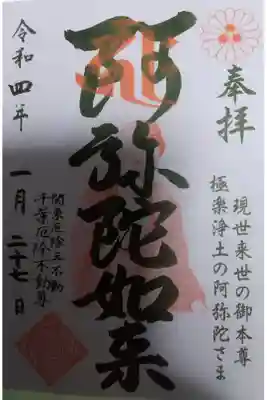 奉拝
現世来世の御本尊
極楽浄土の阿弥陀さま
阿弥陀如来
関東厄除三不動
千葉厄除不動尊
令和四年
一月二十七日